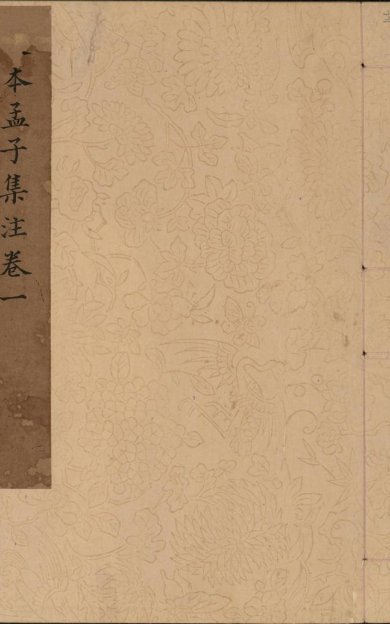 本孟子集注卷一